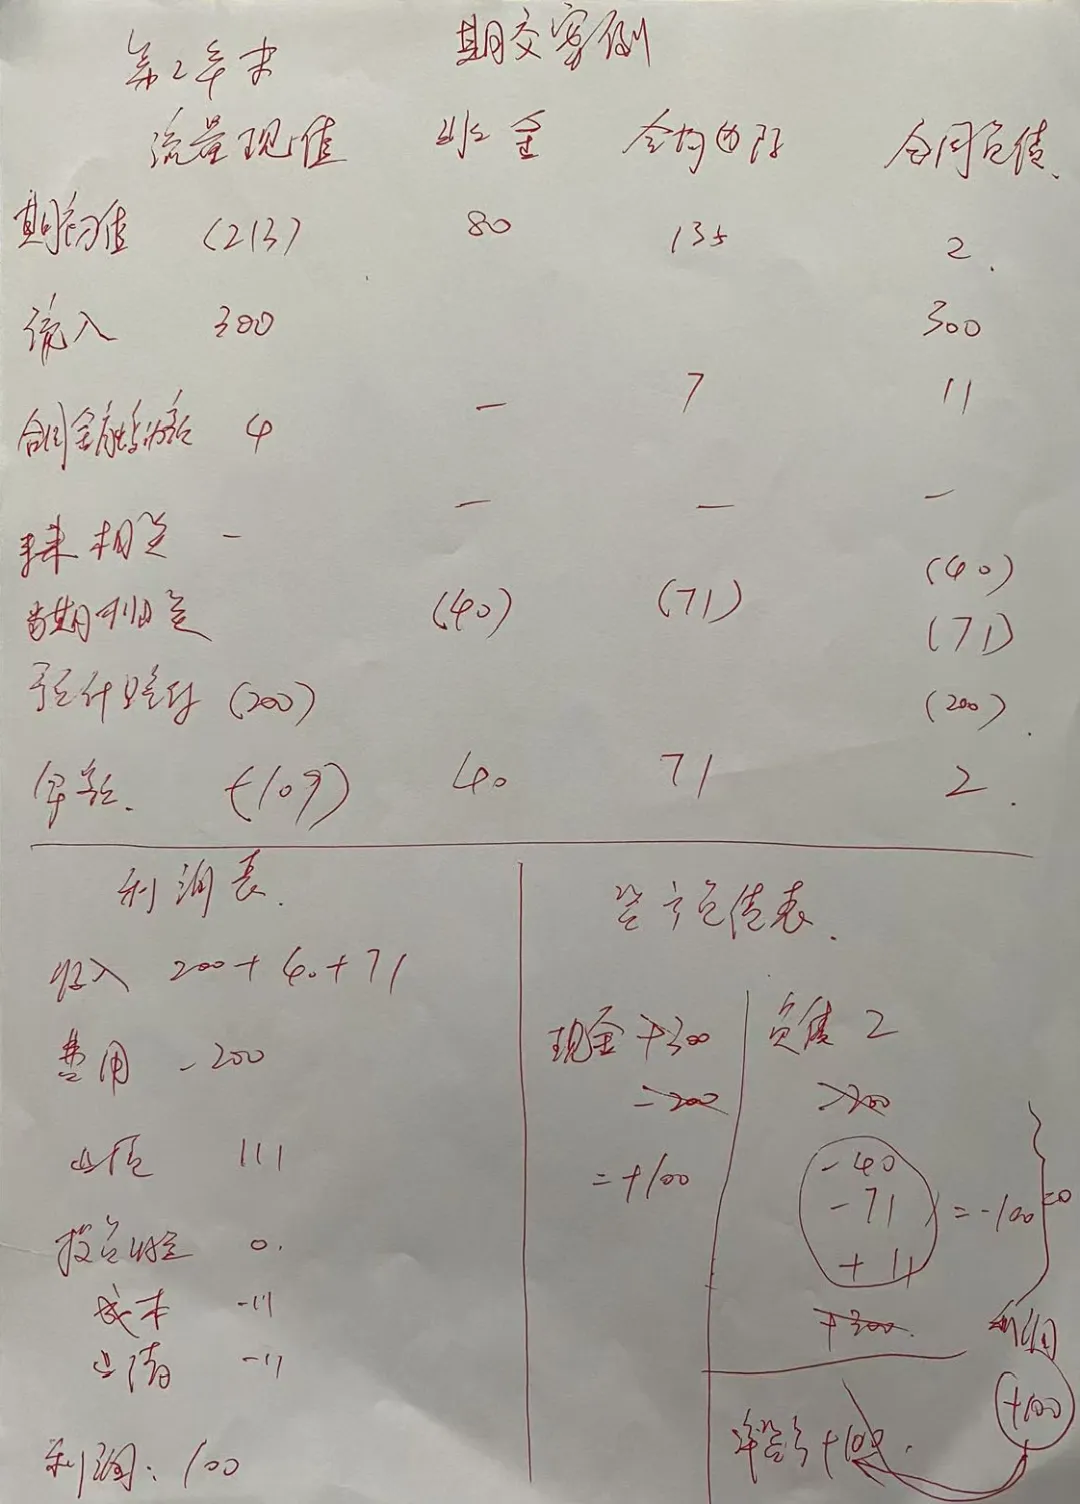 第2年末 期交案例
流量现值 合同负债
期初值 (213) 80 135 2
流入 300 300
合同金融 4 — 7 11
未来相关 - — — —
当期相关 (40) (71) (40)
(71)
预计赔付 (200) (200)
余额 (-109) 40 71 2
利润表
收入 200+40+71
费用 -200
业绩 111
投资业绩 0
成本 -11
-11
利润: 100
资产负债表
现金 +300
-200
=+100
负债 2
-200
-40
-71
+11
=-100
=0
+300
利润
+100
净资产 +100